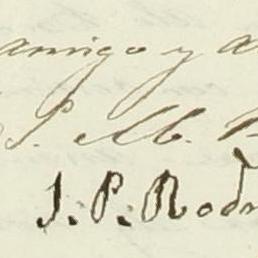 amigo y a
S. M. B.
J. P. Rodr